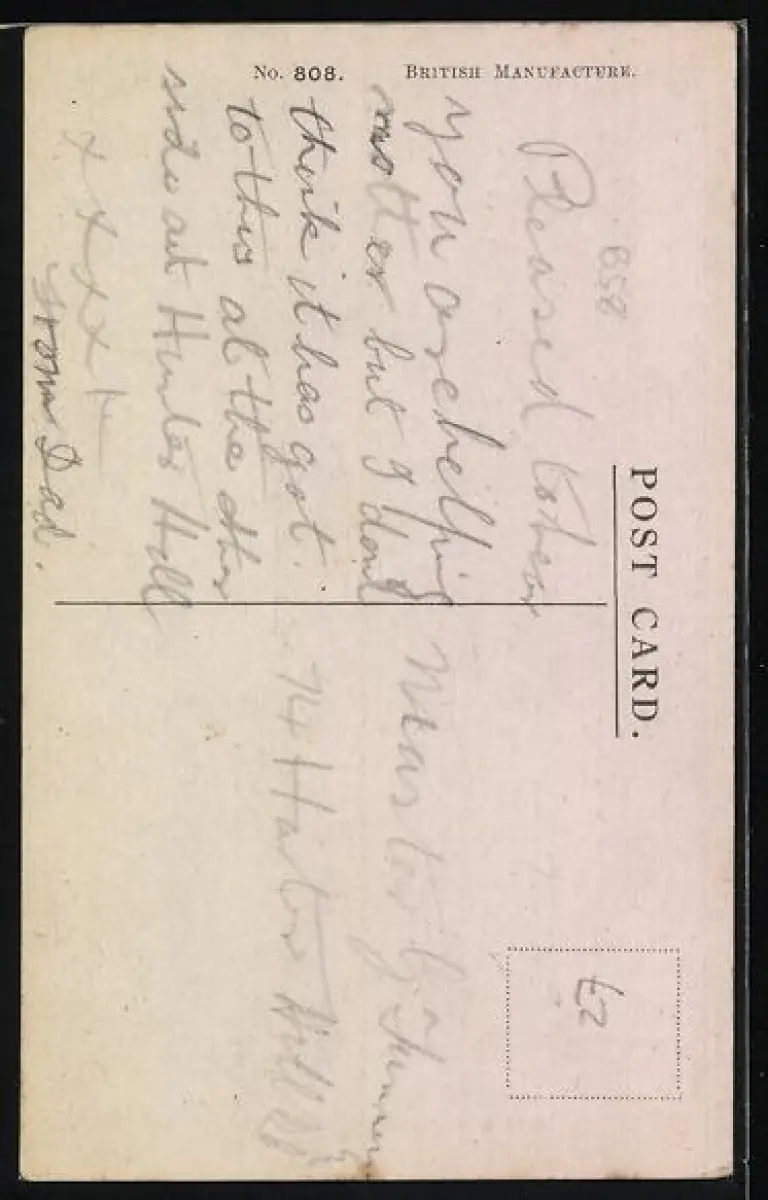 No. 808. BRITISH MANUFACTURE.
POST CARD.
B58
Pleased to hear
you are helping
mother but I dont
think it has got
to this at the other
side at Hunter Hill
x x x x x
From Dad.
£2
Master G Tanner
74 Hunter Hill Rd